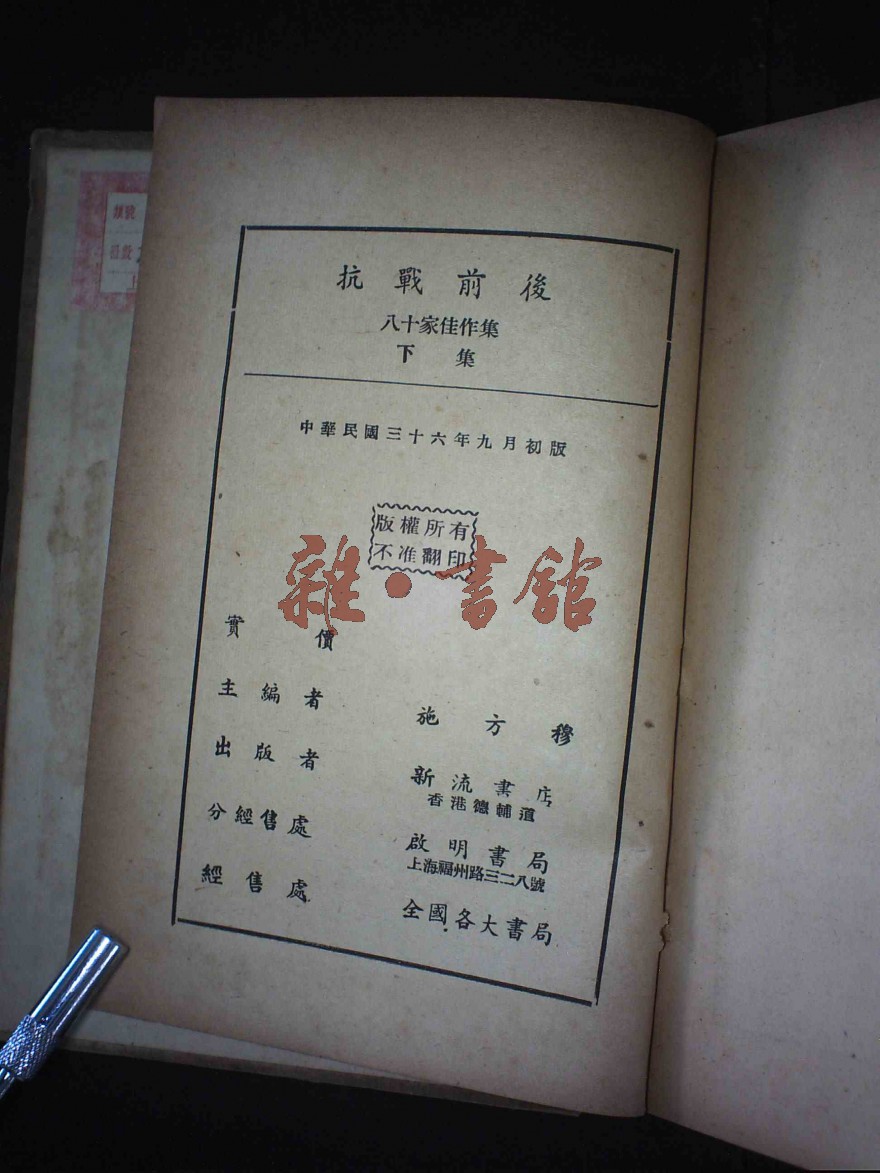 抗戰前後
八十家佳作集
下集
中華民國三十六年九月初版
版權所有
不准翻印
雜·書館
實價
主編者 施方穆
出版者 新流書店
香港德輔道
分經售處 啟明書局
上海福州路三二八號
經售處 全國各大書局
類號
冊數
上